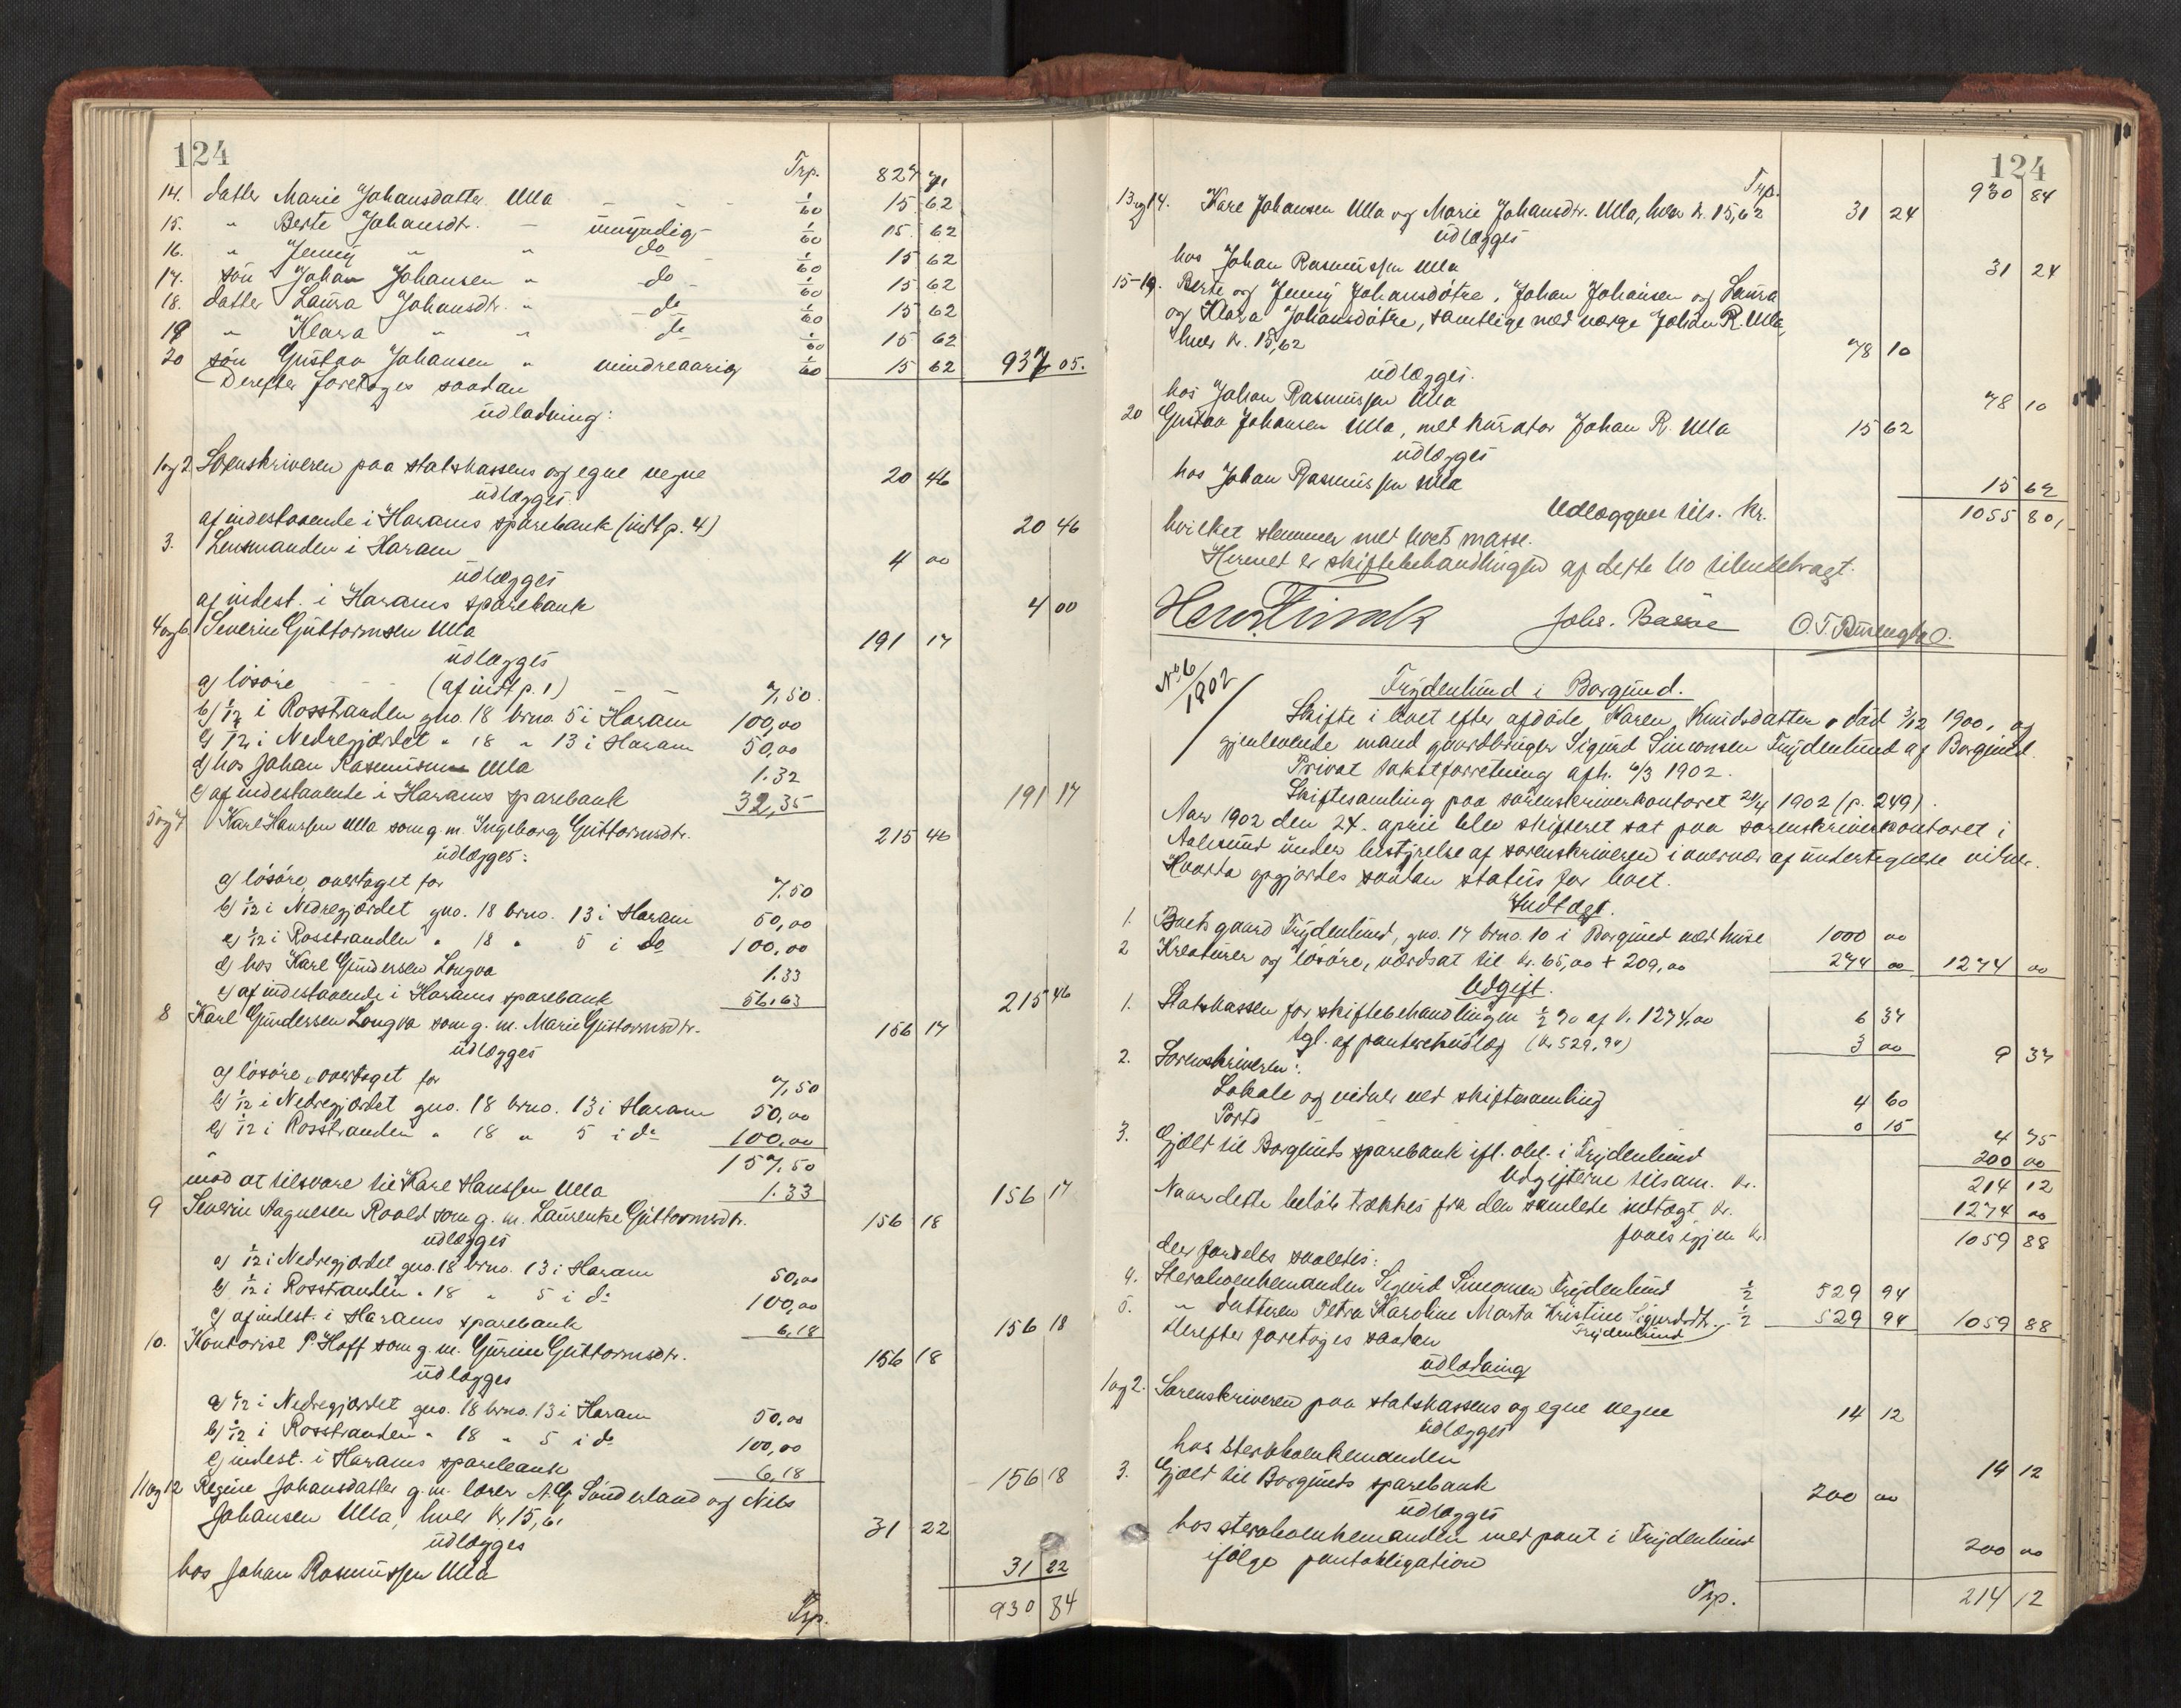 124
Trp. 827 71
14. datter Marie Johansdatter Ulla 1/60 15 62
15. " Berte Johansdt. - umyndig 1/60 15 62
16. " Jenny " " do 1/60 15 62
17. søn Johan Johansen " do 1/60 15 62
18. datter Laura Johansdtr. " do 1/60 15 62
19 " Klara " " do 1/60 15 62
20 søn Gustav Johansen " mindreaarig 1/60 15 62 937 05.
Derefter foretoges saadan
udlodning:
1og2 Sorenskriveren paa statskassens og egne vegne 20 46
udlægges
af indestaaende i Harams sparebank (indt p. 4) 20 46
3. Lensmanden i Haram 4 00
udlægges
af indest. i Harams sparebank 4 00
4og6 Severin Guttormsen Ulla 191 17
udlægges
a) løsøre - - (af indt p. 1) - - 7,50
b) 1/12 i Rosstranden gno. 18 brno. 5 i Haram 100,00
c) 1/12 i Nedregjærdet " 18 " 13 i Haram 50,00
d) hos Johan Rasmussen Ulla 1.32
e) af indestaaende i Harams sparebank 32,35 191 17
5og7 Karl Hanssen Ulla som g. m. Ingeborg Guttormsdtr. 215 46
udlægges:
a) løsøre, overtaget for 7.50
b) 1/12 i Nedregjærdet gno. 18 brno. 13 i Haram 50,00
c) 1/12 i Rosstranden " 18 " 5 i do 100,00
d) hos Karl Gundersen Longva 1.33
e) af indestaaende i Harams sparebank 56,63 215 46
8 Karl Gundersen Longva som g. m. Marie Guttormsdtr. 156 17
udlægges
a) løsøre, overtaget for 7,50
b) 1/12 i Nedregjærdet gno. 18 brno. 13 i Haram 50,00
c) 1/12 i Rosstranden " 18 " 5 i do 100,00
157,50
mod at tilsvare til Karl Hanssen Ulla 1.33 156 17
9 Severin Aagnesen Roald som g. m. Laurentze Guttormsdtr. 156 18
udlægges
a) 1/12 i Nedregjærdet gno. 18 brno. 13 i Haram 50,00
b) 1/12 i Rosstranden " 18 " 5 i do 100,00
c) af indest. i Harams sparebank 6,18 156 18
10. Kontorist P. Hoff som g. m. Gurine Guttormsdtr. 156 18
udlægges
a) 1/12 i Nedregjærdet gno. 18 brno. 13 i Haram 50,00
b) 1/12 i Rosstranden " 18 " 5 i do 100,00
c) indest. i Harams sparebank 6,18 156 18
11og12 Regine Johansdatter g. m. lærer Sunderland og Nils
Johansen Ulla, hver kr 15,61 31 22
udlægges
hos Johan Rasmussen Ulla 31 22
Trp. 930 84
124
Trp. 930 84
13og14. Kare Johansen Ulla og Marie Johansdtr. Ulla, hver kr. 15,62 31 24
udlægges
hos Johan Rasmussen Ulla 31 24
15-19. Berte og Jenny Johansdøtre, Johan Johansen og Laura
og Klara Johansdøtre, samtlige med værge Johan R. Ulla,
hver kr. 15,62 78 10
udlægges.
hos Johan Rasmussen Ulla 78 10
20 Gustav Johansen Ulla, med kurator Johan R. Ulla 15 62
udlægges
hos Johan Rasmussen Ulla 15 62
Udlæggene tils. kr. 1055 80,
hvilket stemmer med boets masse.
Hermed er skiftebehandlingen af dette bo tilendebragt.
Johs. Basse
No 6/1902
Frydenlund i Borgund.
Skifte i boet efter afdøde Karen Knudsdatter, død 3/12 1900, og
gjenlevende mand gaardbruger Sigurd Simonsen Frydenlund af Borgund.
Privat takstforretning afh. 6/3 1902.
Skiftesamling paa sorenskriverkontoret 24/4 1902 (p. 249).
Aar 1902 den 24. april blev skifteret sat paa sorenskriverkontoret i
Aalesund under bestyrelse af sorenskriveren i overvær af undertegnede vidner.
Hvorda opgjordes saadan status for boet.
Indtægt.
1. Boets gaard Frydenlund, gno. 17 brno. 10 i Borgund med huse 1000 00
2 Kreaturer og løsøre, værdsat til kr. 65,00 + 209,00 274 00 1274 00
Udgift.
1. Statskassen for skiftebehandlingen 1/2 % af kr. 1274,00 6 37
tgl. af panteretudlæg (kr 529,94) 3 00 9 37
2. Sorenskriveren:
Lokale og vidner ved skiftesamling 4 60
Porto 0 15 4 75
3. Gjæld til Borgunds sparebank ifl. obl. i Frydenlund 200 00
Udgifterne tilsam. kr. 214 12
Naar dette beløb trækkes fra den samlede indtægt, kr. 1274 00
faaes igjen kr 1059 88
der fordeles saaledes:
4. Sterboenkemanden Sigurd Simonsen Frydenlund 1/2 529 94
5. " datteren Petra Karoline Marta Kristine Sigurdsdtr. Frydenlund 1/2 529 94 1059 88
Derefter foretoges saadan
udlodning
1og2. Sorenskriveren paa statskassens og egne vegne 14 12
udlægges
hos sterboenkemanden 14 12
3. Gjæld til Borgunds sparebank 200 00
udlægges
hos sterboenkemanden med pant i Frydenlund
ifølge pantobligation 200 00
Trp. 214 12